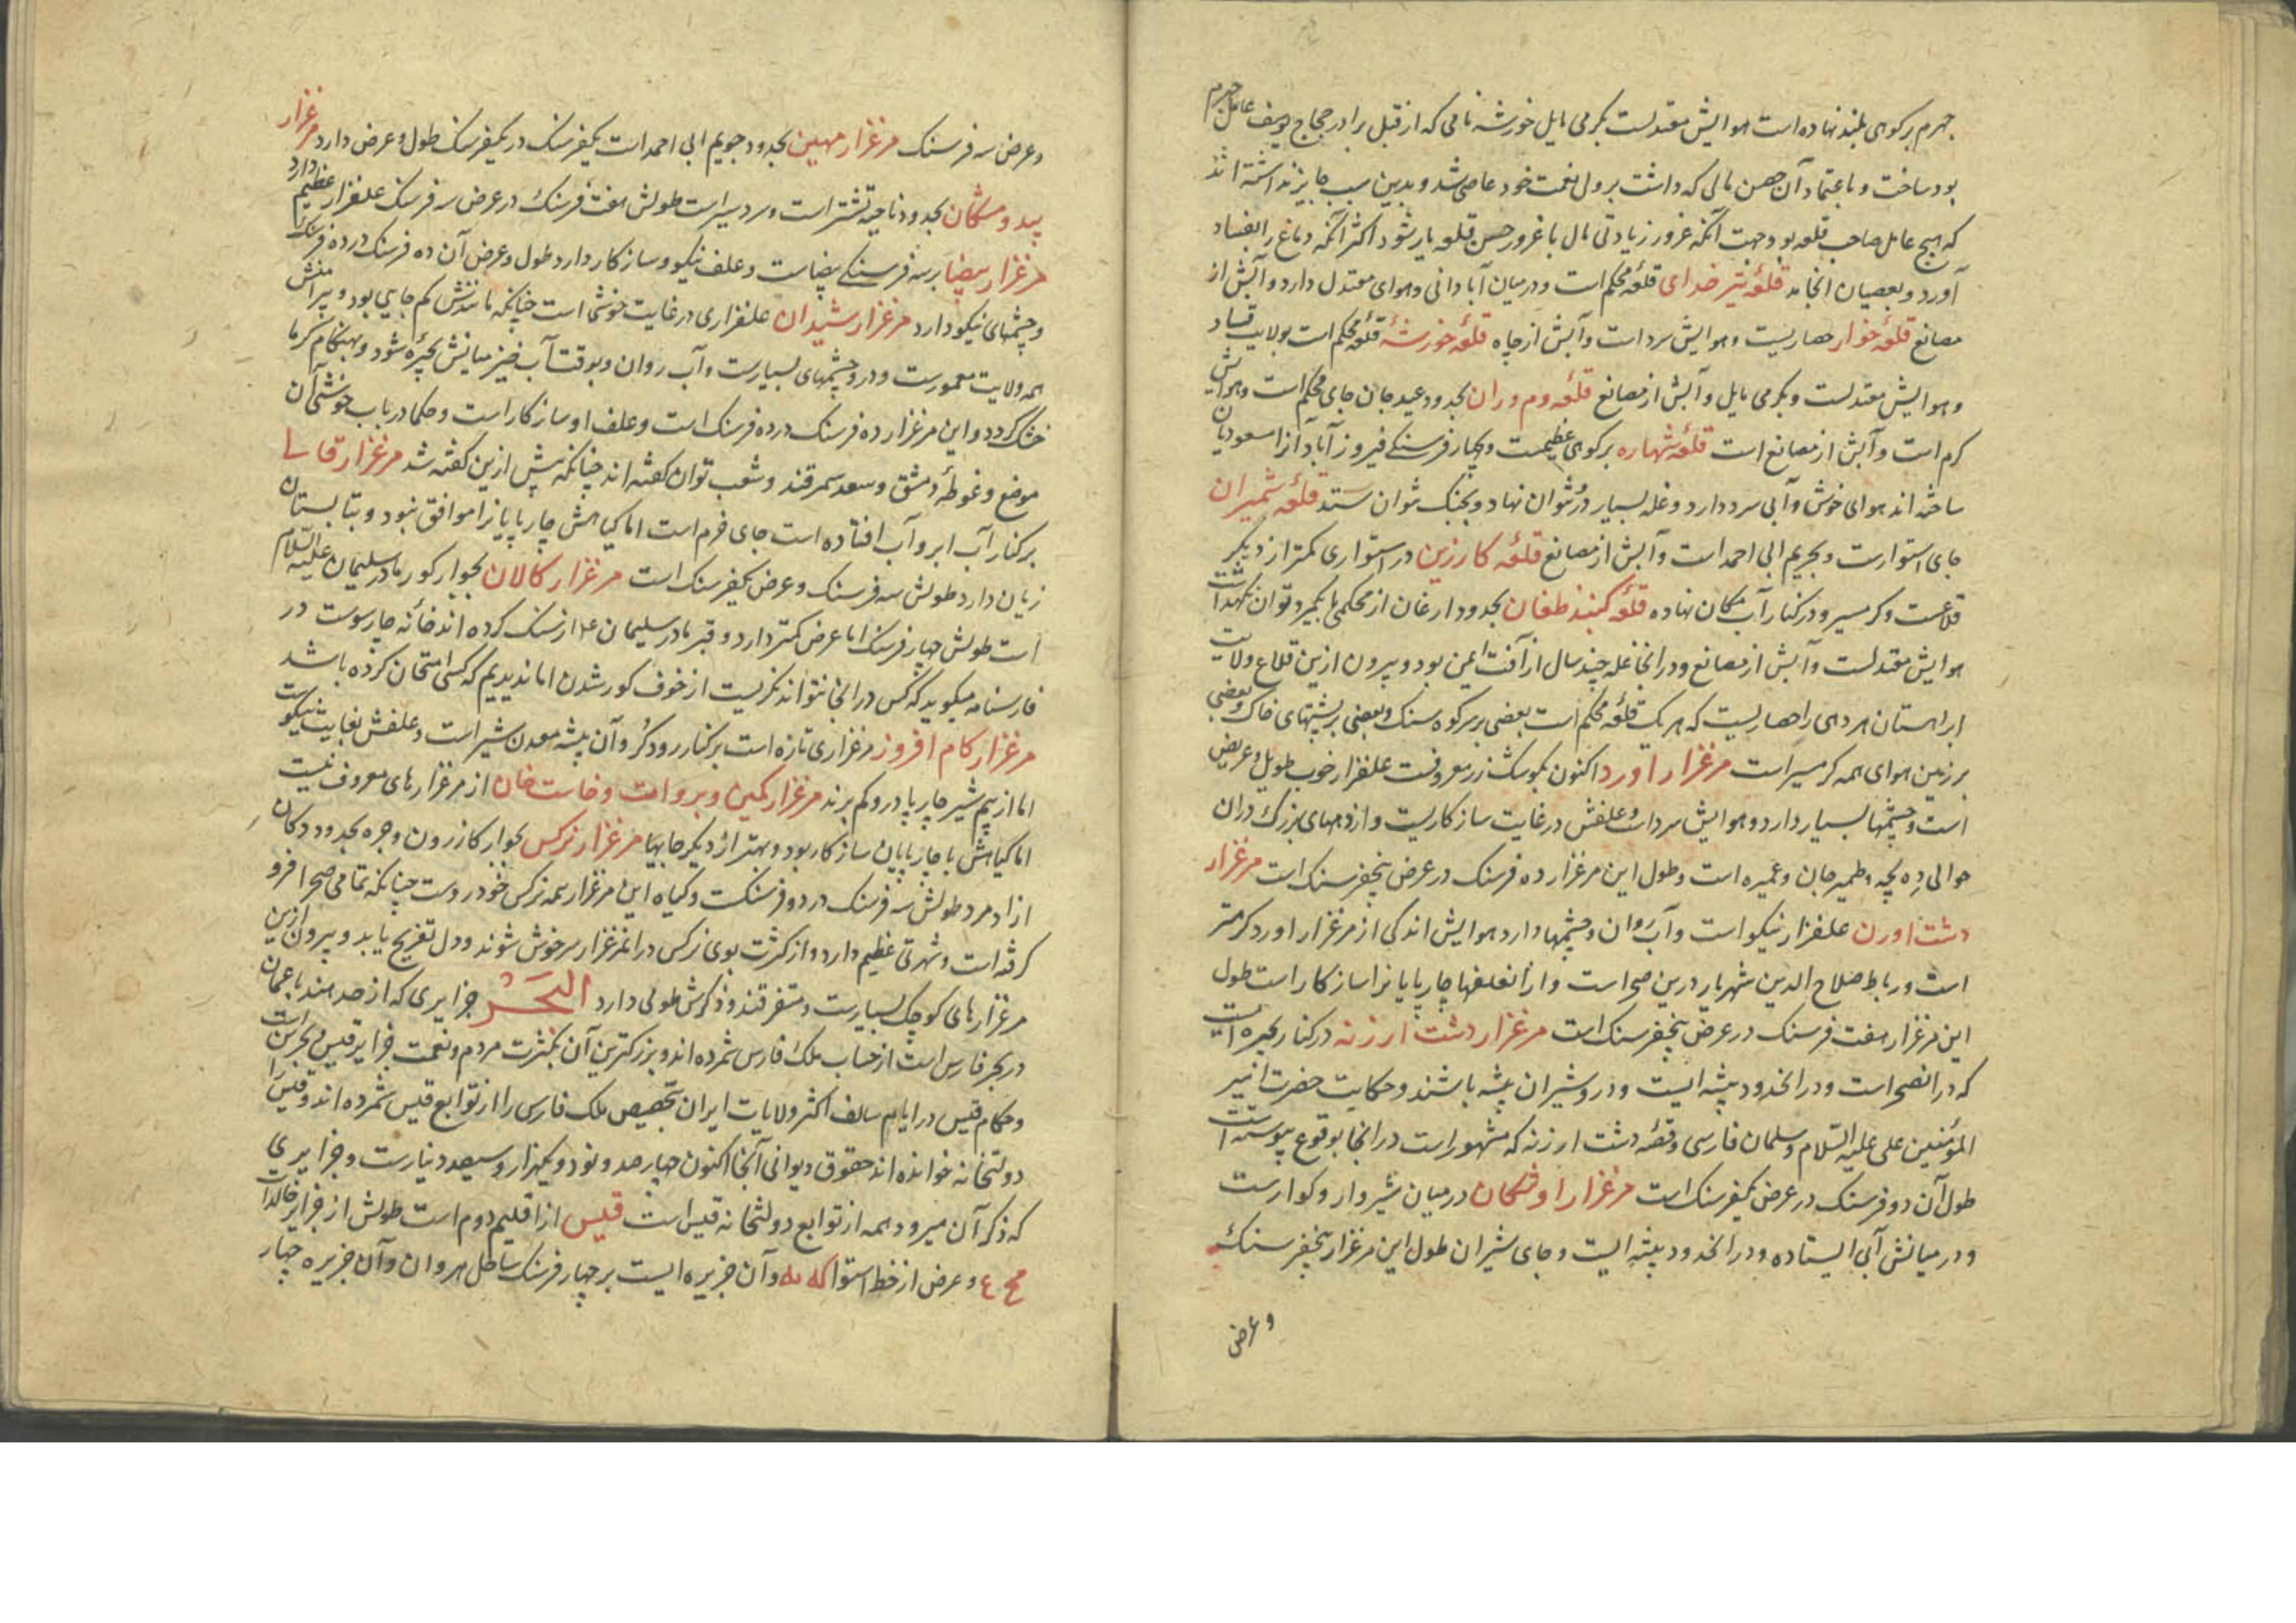 جهرم بر کوهی بلند نهاده است هوایش معتدلست بگرمی مایل خورشه نامی که از قبل برادر حجاج یوسف عامل جهرم
بود ساخت و باعتماد آن حصن مالی که داشت بر ولی نعمت خود عاصی شد و بدین سبب جایز نداشته اند
که هیچ عامل صاحب قلعه بود جهت آنکه غرور زیادتی مال با غرور حسن قلعه یار شود اکثر آنکه دماغ را بفساد
آورد و بعصیان انجامد قلعهٔ تیر خدای قلعهٔ محکم است و در میان آبادانی و هوای معتدل دارد و آبش از
مصانع قلعهٔ خوار حصاریست و هوایش سرد است و آبش از چاه قلعهٔ خورشهٔ قلعهٔ محکم است بولایت فساد
و هوایش معتدلست و بگرمی مایل و آبش از مصانع قلعهٔ دم دران بحدود عیدجان جای محکم است و هوایش
گرم است و آبش از مصانع است قلعهٔ شهاره بر کوهی عظیمست و بچهار فرسنگی فیروزآباد آنرا مسعودیان
ساخته اند هوای خوش و آبی سرد دارد و غله بسیار درو توان نهاد و بجنک نتوان ستد قلعهٔ شمیران
جای استوارست و بجریم ابی احمد است و آبش از مصانع قلعهٔ کارزین در استواری کمتر از دیگر
قلاعست و گرمسیر و در کنار آب مکان نهاده قلعهٔ کنبد طغان بحدود ارغان از محکمی بایکمرد توان نگهداشت
هوایش معتدلست و آبش از مصانع و در انجا غله چند سال از آفت ایمن بود و بیرون ازین قلاع ولایت
ابراهستان هر دهی را حصاریست که هر یک قلعهٔ محکم است بعضی بر سر کوه سنگ و بعضی بر پشتهای خاک و بعضی
بر زمین هوای همه گرمسیر است مرغزار اورد اکنون بکوشک زر معروفست علفزار خوب طویل و عریض
است و چشمها بسیار دارد و هوایش سرد است و علفش در غایت سازکاریست و از دههای بزرگ دران
حوالی ده بجه و طمیرجان و غمیره است و طول این مرغزار ده فرسنک در عرض پنجفرسنک است مرغزار
دشت اورن علفزار نیکو است و آب روان و چشمها دارد هوایش اندکی از مرغزار اورد گرمتر
است و رباط صلاح الدین شهریار درین صحراست و از آن علفها چارپایانرا سازکار است طول
این مرغزار هفت فرسنک در عرض پنجفرسنک است مرغزار دشت ارزنه در کنار بحیره ایست
که در انصحراست و در انحدود بیشه ایست و درو شیران بیشه باشند و حکایت حضرت امیر
المؤمنین علی علیه السلام و سلمان فارسی و قصهٔ دشت ارزنه که مشهور است در انجا بوقوع پیوسته است
طول آن دو فرسنک در عرض یکفرسنک است مرغزار راوشکان در میان شیروار و کوارست
و در میانش آبی ایستاده و در انحدود بیشه ایست و جای شیران طول این مرغزار پنجفرسنک
و عرض
و عرض سه فرسنک مرغزار مهین بحدود جویم ابی احمد است یکفرسنک در یکفرسنک طول و عرض دارد مرغزار
بید و مشکان بحدود ناحیه تشتر است و سردسیر است طولش هفت فرسنک در عرض سه فرسنک علفزار عظیم دارد
مرغزار بیضا بر سه فرسنگی بیضاست و علف نیکو و سازکار دارد طول و عرض آن ده فرسنک در ده فرسنک
و چشمهای نیکو دارد مرغزار رشیدان علفزاری در غایت خوشی است چنانکه مانندش کم جایی بود و پیرامنش
همه ولایت معمورست و در و چشمهای بسیارست و آب روان و بوقت آب خیز میانش بحیره شود و بهنگام گرما
خشک گردد و این مرغزار ده فرسنک در ده فرسنک است و علف او سازکار است و حکما در باب خوشی آن
موضع و غوطهٔ دمشق و سعد سمرقند و شعب توان گفته اند چنانکه پیش ازین گفته شد مرغزار قاسا
بر کنار آب ابر و آب افتاده است جای خرم است اما گیاهش چارپایانرا موافق نبود و بتابستان
زیان دارد طولش سه فرسنک و عرض یکفرسنک است مرغزار کالان بجوار کور مادر سلیمان علیه السلام
است طولش چهار فرسنک اما عرض کمتر دارد و قبر مادر سلیمان ع از سنک کرده اند خانه چارسوست در
فارسنامه میگوید که کس در انجا نتواند نگریست از خوف کور شدن اما ندیدیم که کسی امتحان کرده باشد
مرغزار کام افروز مرغزاری تازه است بر کنار رود کر و آن بیشه معدن شیر است و علفش بغایت نیکوست
اما از بیم شیر چارپا درو کم برند مرغزار کمین و بروات و خاست خان از مرغزارهای معروف نیست
اما گیاهش با چارپایان سازکار بود و بهتر از دیگر جایها مرغزار نرکس بجوار کازرون و جره بحدود دکان
ازادمرد طولش سه فرسنک در دو فرسنکت و گیاه این مرغزار همه نرکس خودروست چنانکه تمامی صحرا فرو
گرفته است و شهرتی عظیم دارد و از کثرت بوی نرکس در انمرغزار سرخوش شوند و دل تفریح یابد و بیرون ازین
مرغزارهای کوچک بسیارست و متفرقند و ذکرش طولی دارد البحر جزایری که از حد هند با عمان
در بحر فارس است از حساب ملک فارس شمرده اند و بزرگترین آن بکثرت مردم و نعمت جزایر قیس و بحرین است
و حکام قیس در ایام سالف اکثر ولایات ایران بتخصیص ملک فارس را از توابع قیس شمرده اند و قیس را
دولتخانه خوانده اند حقوق دیوانی آنجا اکنون چهارصد و نود و یکهزار و سیصد دینارست و جزایری
که ذکر آن میرود همه از توابع دولتخانه قیس است قیس از اقلیم دوم است طولش از جزایر خالدات
مح ع و عرض از خط استوا که یه و آن جزیره ایست بر چهار فرسنک ساحل هروان و آن جزیره چهار